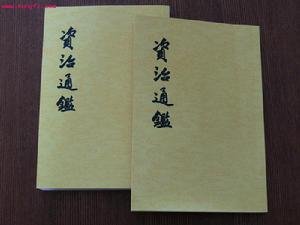 www.kongfz.com
資治通鑑
資治通鑑